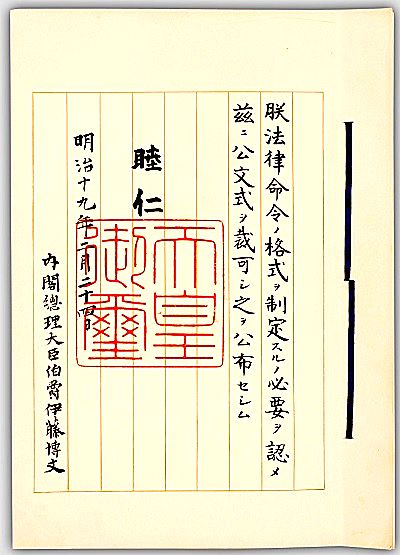 朕法律命令ノ格式ヲ制定スルノ必要ヲ認メ
玆ニ公文式ヲ裁可シ之ヲ公布セシム
睦仁
天皇御璽
明治十九年二月二十四日
内閣總理大臣伯爵伊藤博文